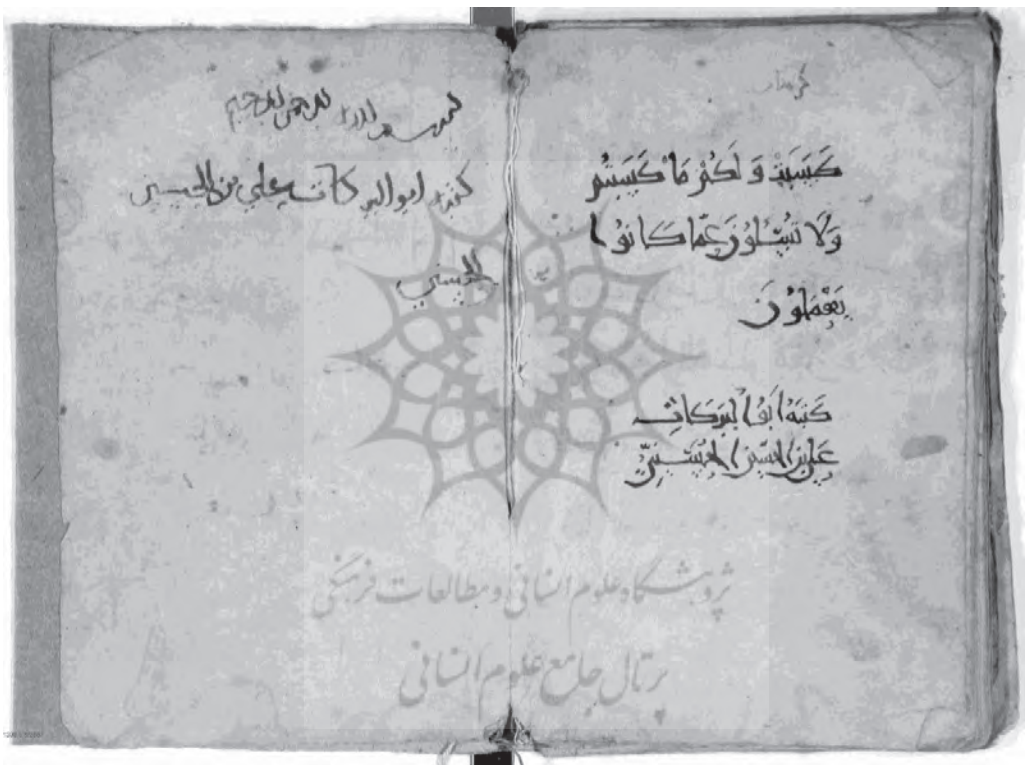 كَسَبَتْ وَلَكُمْ مَا كَسَبْتُمْ
وَلَا تُسْئَلُونَ عَمَّا كَانُوا
يَعْمَلُونَ
كَتَبَهُ أَبُو الْبَرَكَاتِ
عَلِيُّ بْنُ الْحُسَيْنِ الْحُسَيْنِيّ
الرحمن الرحيم
كتبه ابو البركات علي بن الحسين
الحسيني
پژوهشگاه علوم انسانی و مطالعات فرهنگی
پرتال جامع علوم انسانی